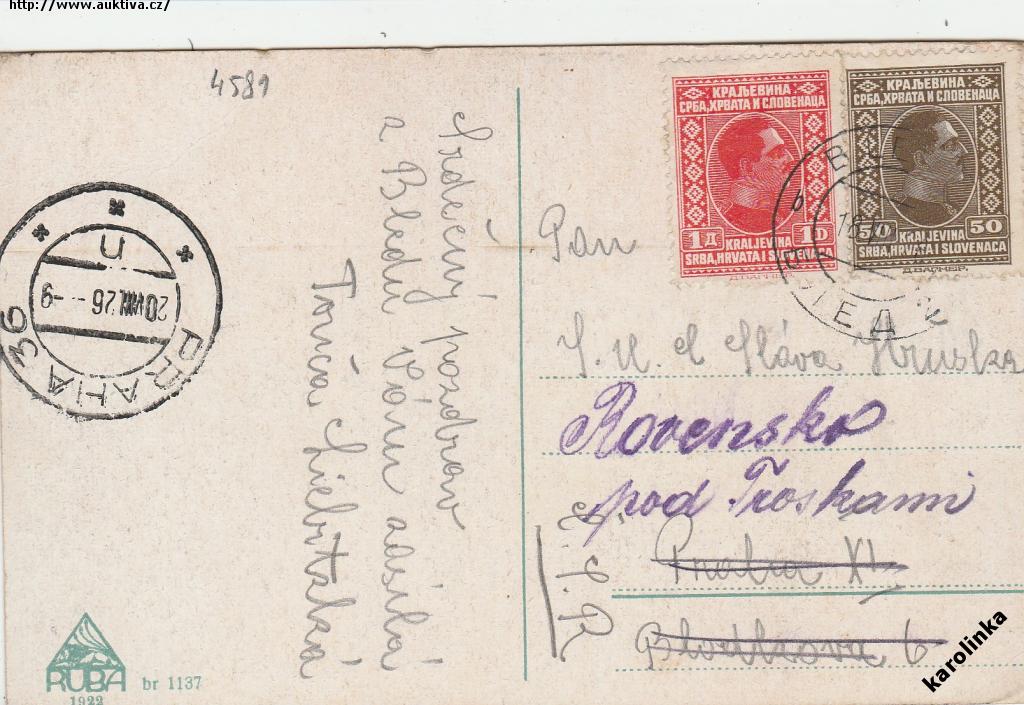 http://www.auktiva.cz/
4581
КРАЉЕВИНА
СРБА, ХРВАТА И СЛОВЕНАЦА
1Д 1D
KRALJEVINA
SRBA, HRVATA I SLOVENACA
КРАЉЕВИНА
СРБА, ХРВАТА И СЛОВЕНАЦА
50 50
KRALJEVINA
SRBA, HRVATA I SLOVENACA
Д.ВАГНЕР.
PRAHA 36
20.VIII.26 -9
Srdečný pozdrav
z Bledu Vám zasílá
Pan
Sláva Hruška
Rovensko
pod Troskami
Č.S.R.
Praha XI
6
RUBA
br 1137
1922
karolinka